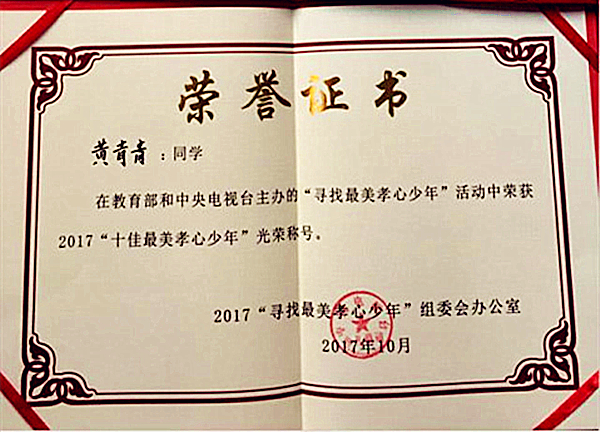 荣誉证书
黄青青：同学
在教育部和中央电视台主办的“寻找最美孝心少年”活动中荣获
2017“十佳最美孝心少年”光荣称号。
2017“寻找最美孝心少年”组委会办公室
2017年10月